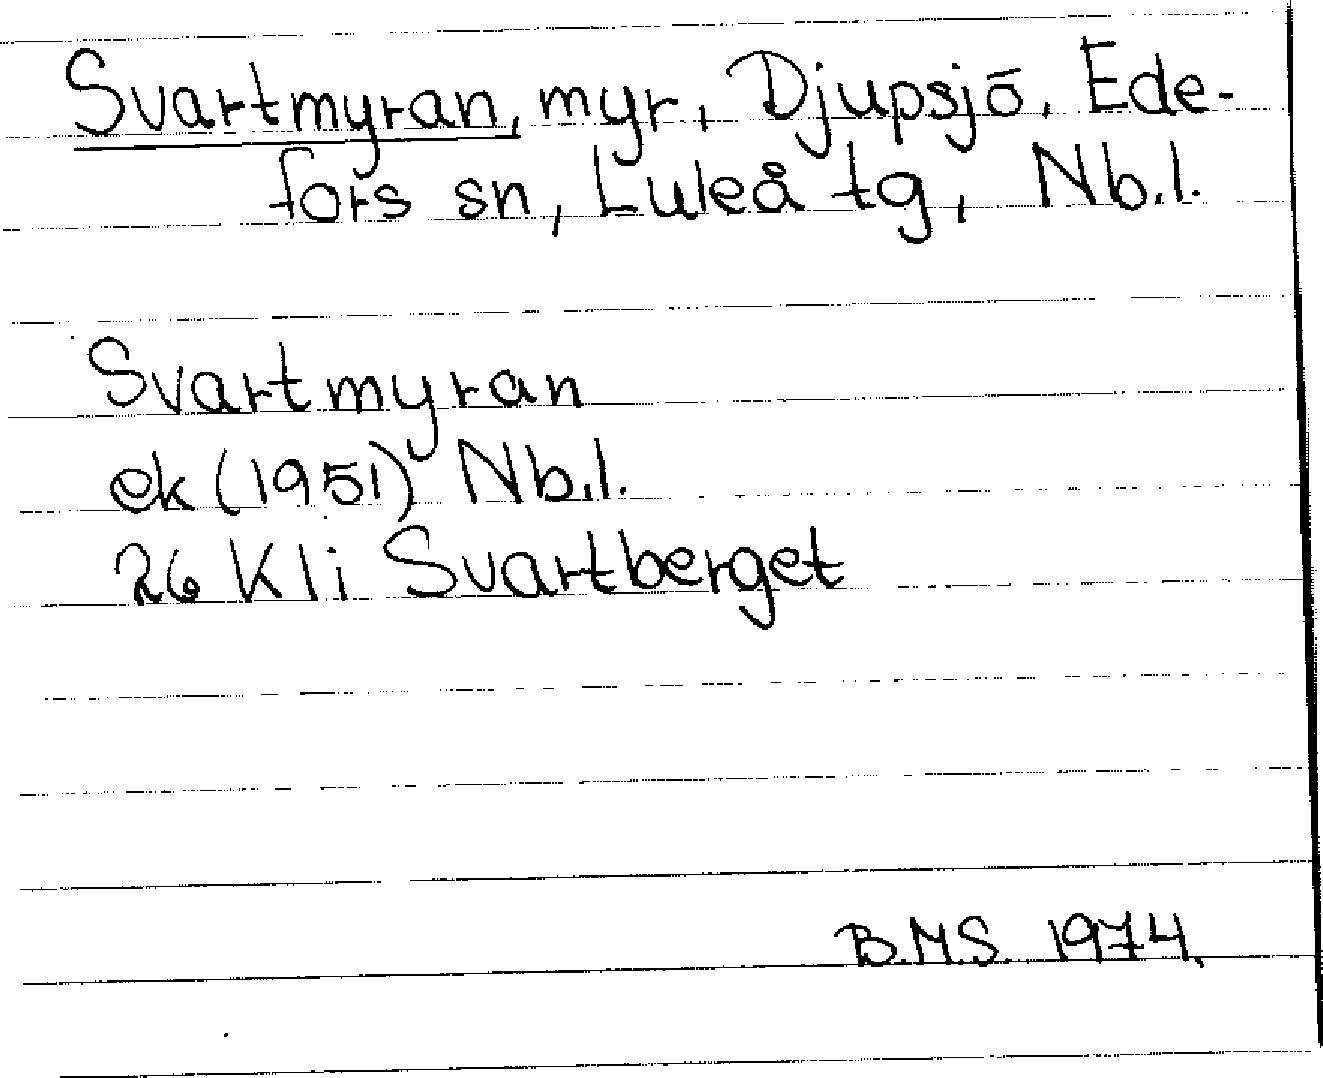 Svartmyran, myr, Djupsjö, Ede-
fors sn, Luleå tg, Nb.l.
Svartmyran
ek (1951) Nb.l.
26 K l i Svartberget
B.M.S. 1974.